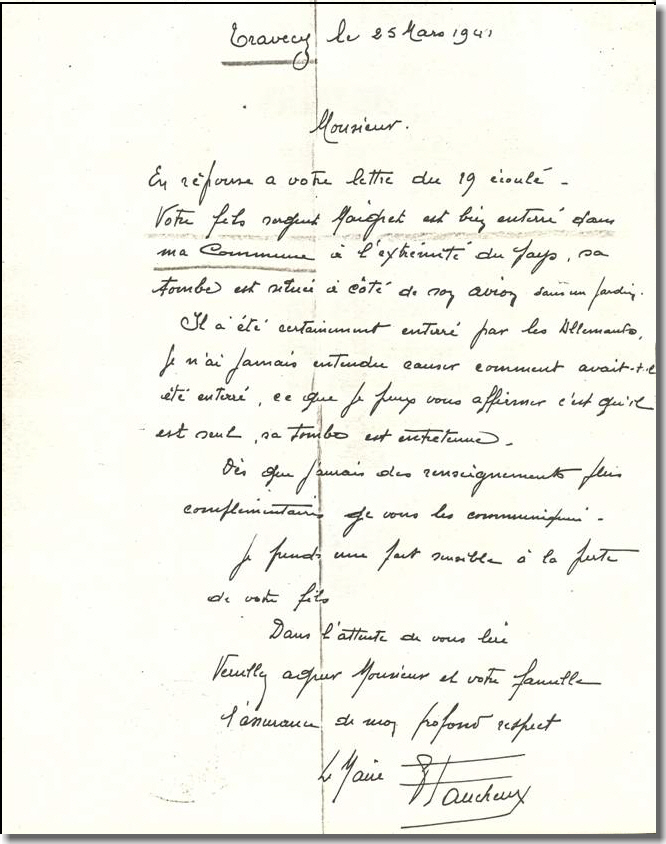 Travecy le 25 Mars 1941
Monsieur.
En réponse a votre lettre du 19 écoulé -
Votre fils sergent Maigret est bien enterré dans
ma Commune à l'extrémité du pays, sa
tombe est située à côté de son avion dans un jardin.
Il a été certainement enterré par les Allemands,
Je n'ai jamais entendu causer comment avait-t-il
été enterré, ce que je peux vous affirmer c'est qu'il
est seul, sa tombe est entretenue.
Dès que j'aurais des renseignements plus
complémentaires je vous les communiquerai -
Je prends une part sensible à la perte
de votre fils
Dans l'attente de vous lire
Veuillez agréer Monsieur et votre famille
l'assurance de mon profond respect
Le Maire